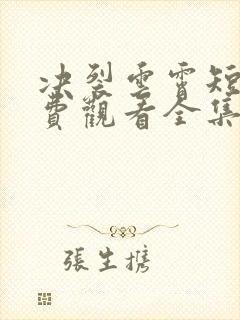 决裂雲霄短
費觀看全集
張生携